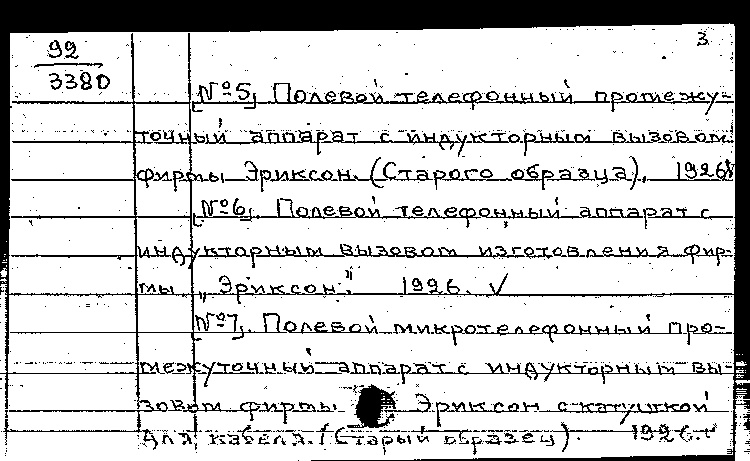 3
92
3380
[№5] Полевой телефонный промежу-
точный аппарат с индукторным вызовом
фирмы Эриксон. (Старого образца). 1926 V
[№6]. Полевой телефонный аппарат с
индукторным вызовом изготовления фир-
мы „Эриксон". 1926. V
[№7]. Полевой микротелефонный про-
межуточный аппарат с индукторным вы-
зовом фирмы Эриксон с катушкой
для кабеля. (Старый образец). 1926. V